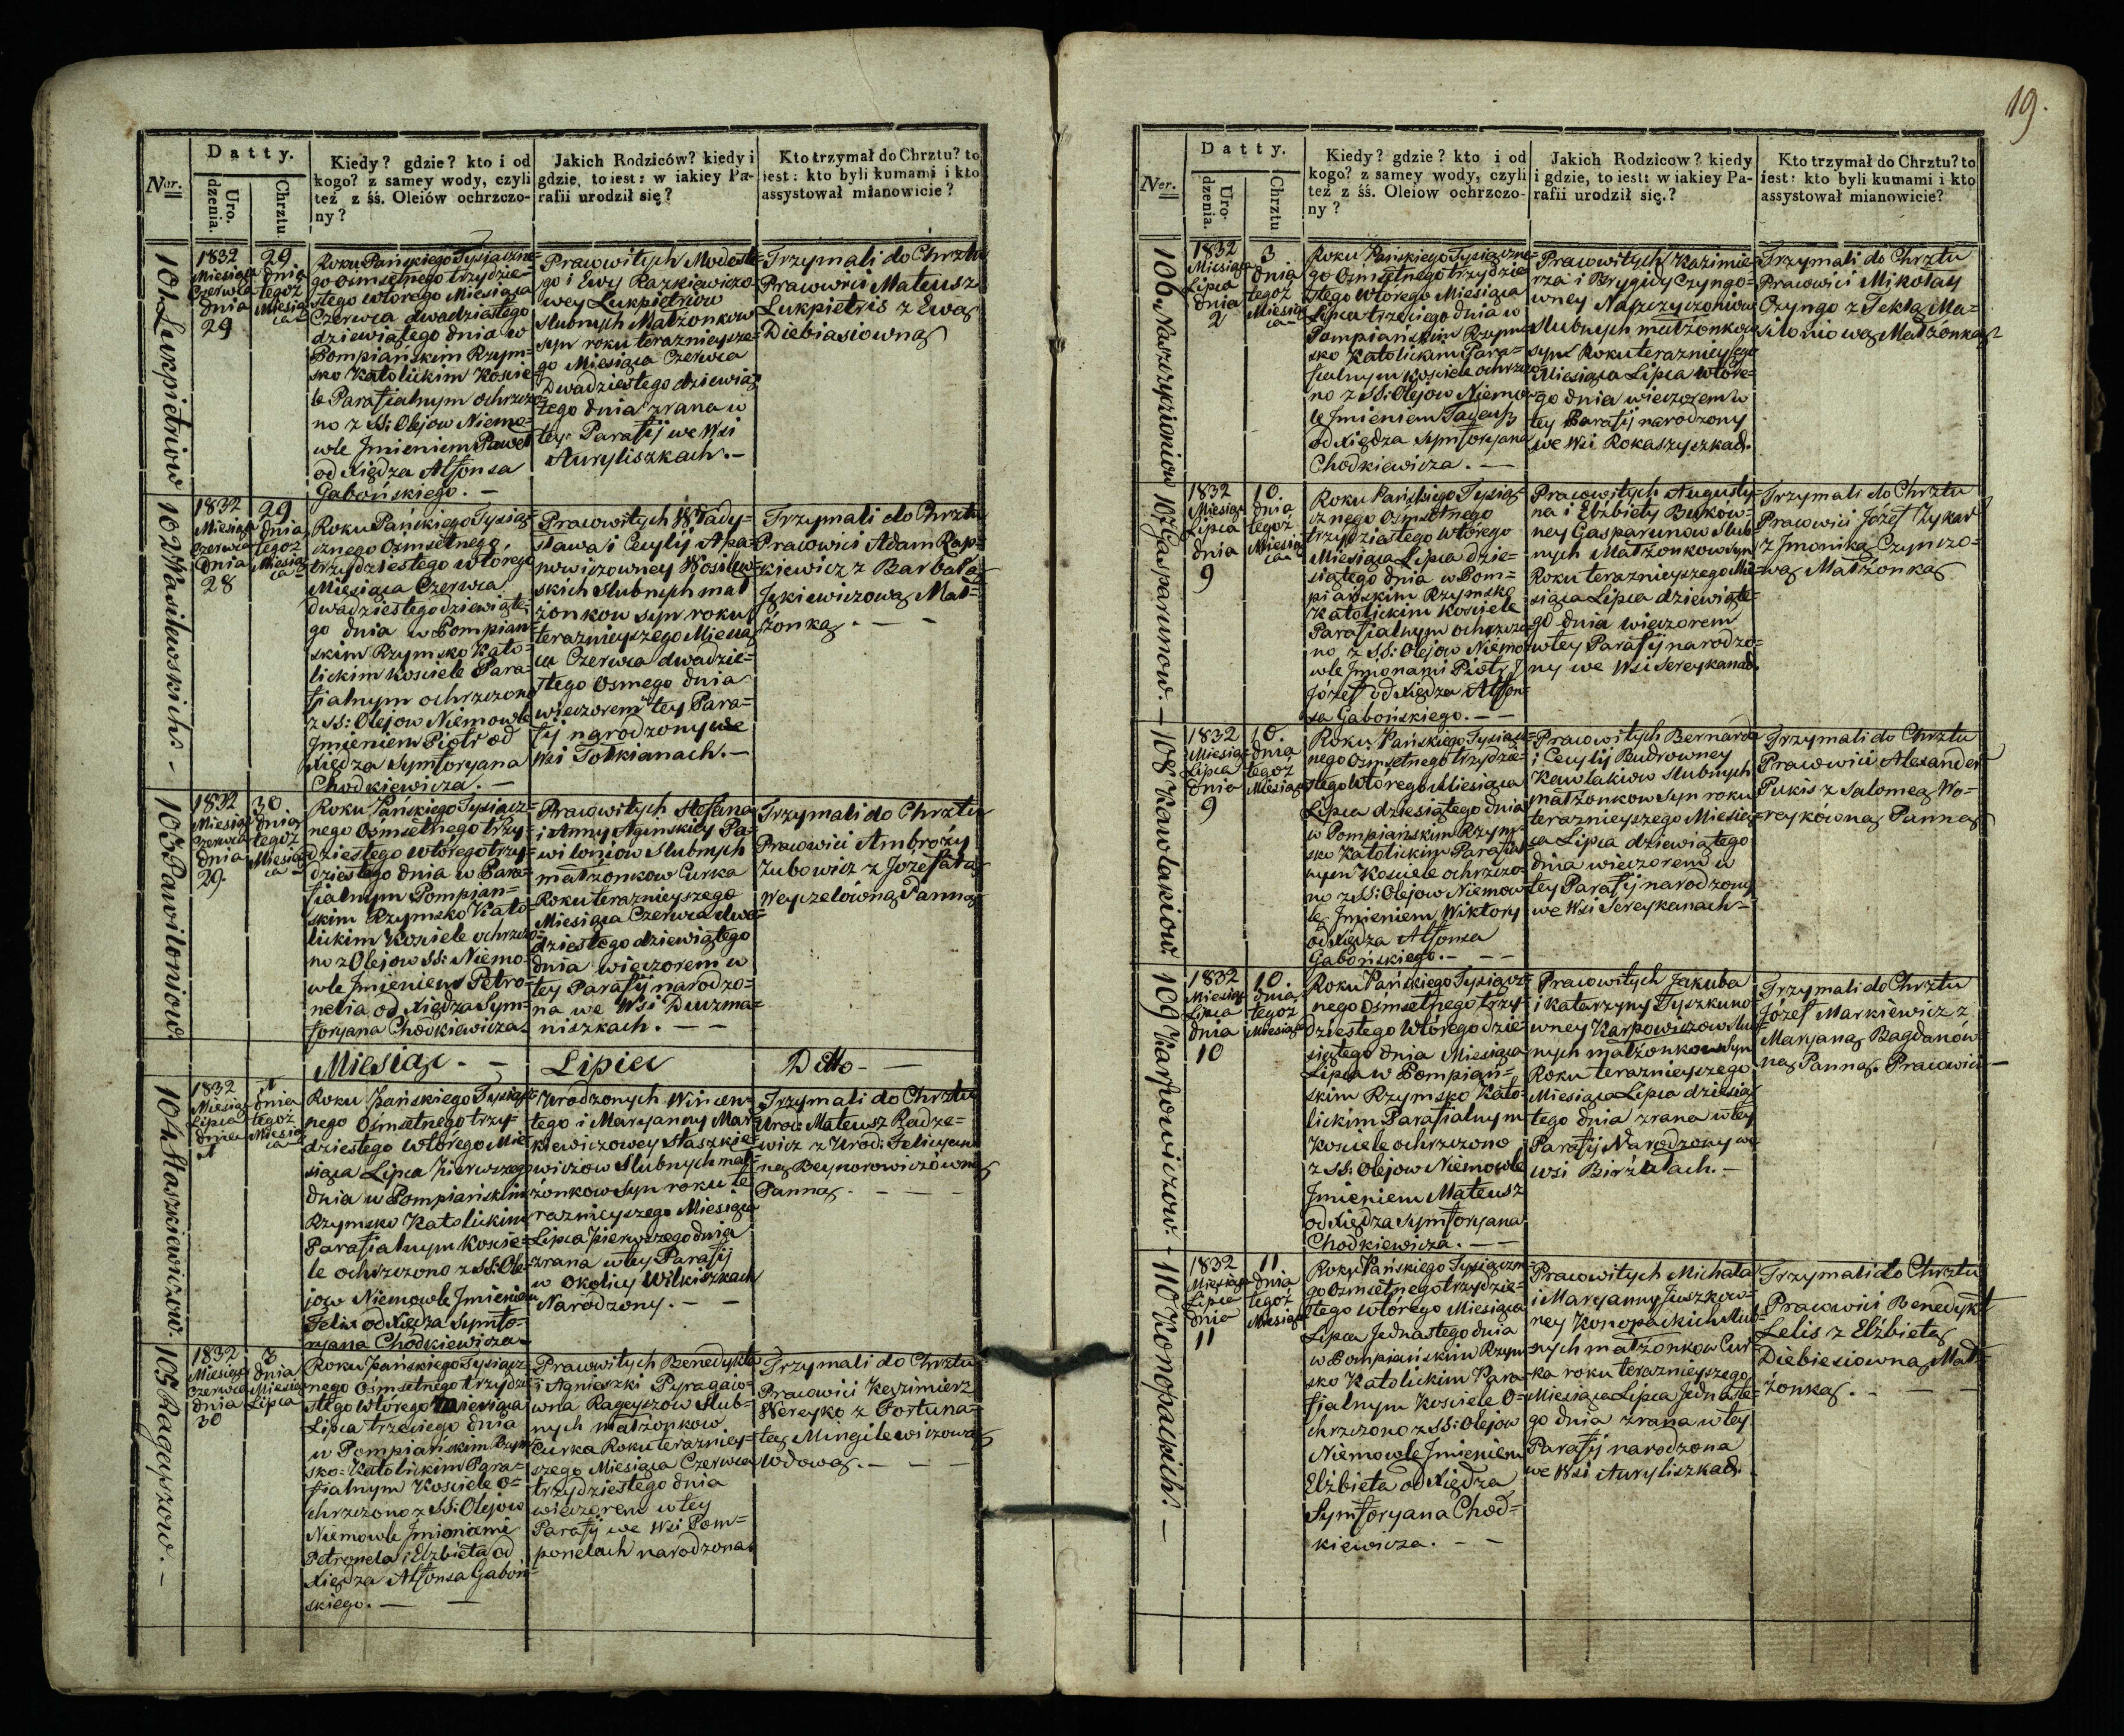 19.
D a t t y.
Ner.
Uro.
dzenia.
Chrztu.
Kiedy? gdzie? kto i od
kogo? z samey wody, czyli
też z śś. Oleiów ochrzczo-
ny?
Jakich Rodziców? kiedy i
gdzie, to iest: w iakiey Pa-
rafii urodził się?
Kto trzymał do Chrztu? to
iest: kto byli kumami i kto
assystował mianowicie?
101 Lukpietriow
1832
Miesiąca
Czerwca
dnia
29
29
dnia
tegoż
Miesią
ca
Roku Pańskiego Tysiączne-
go Osmsetnego trzydzie-
stego wtorego Miesiąca
Czerwca dwadziestego
dziewiątego dnia w
Pompiańskim Rzym-
sko Katolickim Koscie-
le Parafialnym ochrzczo-
no z SS: Olejow Niemo-
wle Jmieniem Paweł
od Xiędza Alfonsa
Gabońskiego. —
Pracowitych Modest-
go i Ewy Razkiewiczo-
wey Lukpietrow
Slubnych Małżonkow
syn roku teraznieysze-
go Miesiąca Czerwca
Dwadziestego dziewią-
tego dnia zrana w
tey Parafij we Wsi
Auryliszkach. —
Trzymali do Chrztu
Pracowici Mateusz
Lukpietris z Ewą
Diebiasiowną
102 Wasilewskich. -
1832
Miesiąca
Czerwca
dnia
28
29
dnia
tegoż
Miesią
ca
Roku Pańskiego Tysią-
cznego Osmsetnego,
trzydziestego wtorego
Miesiąca Czerwca
dwadziestego dziewiąte-
go dnia w Pompian-
skim Rzymsko Kato-
lickim Kosciele Para-
fialnym ochrzczono
z SS: Olejow Niemowle
Jmieniem Piotr od
Xiędza Symforyana
Chodkiewicza. —
Pracowitych Włady-
sława i Cecylij Apa-
nowiczowney Wosilew-
skich Slubnych mał-
żonkow syn roku
teraznieyszego Miesią-
ca Czerwca dwadzie-
stego Osmego dnia
wieczorem w tey Para-
fij narodzony we
Wsi Tołkianach. —
Trzymali do Chrztu
Pracowici Adam Rap-
kiewicz z Barbarą
Jękiewiczową Mał-
żonką. — —
103 Pawiloniow
1832
Miesiąca
Czerwca
dnia
29.
30.
dnia
tegoż
Miesią
ca
Roku Pańskiego Tysiącz-
nego Osmsetnego trzy-
dziestego wtorego trzy-
dziestego dnia w Para-
fialnym Pompian-
skim Rzymsko Kato-
lickim Kosciele ochrzczo-
no z Olejow SS: Niemo-
wle Jmieniem Petro-
nelia od Xiędza Sym-
foryana Chodkiewicza.
Pracowitych Stefana
i Anny Agińskiey Pa-
wiloniow Slubnych
małżonkow Curka
Roku teraznieyszego
Miesiąca Czerwca dwa-
dziestego dziewiątego
dnia wieczorem w
tey Parafij narodzo-
na we Wsi Duczma-
niszkach. — —
Trzymali do Chrztu
Pracowici Ambroży
Zubowicz z Jozefatą
Weyzelówną Panną
Miesiąc - - Lipiec Ditto - —
104 Staszkiewiczow.
1832
Miesiąca
Lipca
dnia
1
1
dnia
tegoż
Miesią
ca
Roku Pańskiego Tysiącz-
nego Osmsetnego trzy-
dziestego wtorego Mie-
siąca Lipca Pierwszego
dnia w Pompiańskim
Rzymsko Katolickim
Parafialnym Koscie-
le ochrzczono z SS: Ole-
jow Niemowle Jmieniem
Felix od Xiędza Symfo-
ryana Chodkiewicza
Urodzonych Wincen-
tego i Maryanny Mar-
kiewiczowey Staszkie-
wiczow Slubnych mał-
żonkow Syn roku te-
raznieyszego Miesiąca
Lipca pierwszego dnia
zrana w tey Parafij
w Okolicy Wilkiszkach
Narodzony. — —
Trzymali do Chrztu
Urod: Mateusz Radze-
wicz z Urod: Felicyan-
ną Beynorowiczówną
Panną. - - -
105 Rageyszow. -
1832
Miesiąca
Czerwca
dnia
30
3
dnia
Miesiąca
Lipca
Roku Pańskiego Tysiącz-
nego Osmsetnego trzydzie-
stego Wtórego Miesiąca
Lipca trzeciego dnia
w Pompiańskim Rzym-
sko-Katolickim Para-
fialnym Kosciele o-
chrzczono z SS: Olejow
Niemowle Jmionami
Petronela i Elżbieta od
Xiędza Alfonsa Gaboń-
skiego. — —
Pracowitych Benedykta
i Agnieszki Pyragaio-
wna Rageyszow Slub-
nych małżonkow
Curka Roku teraznie-
szego Miesiąca Czerwca
trzydziestego dnia
wieczorem w tey
Parafij we Wsi Pom-
ponelach narodzona.
Trzymali do Chrztu
Pracowici Kazimierz
Wereyko z Fortuna-
tą Mingilewiczową
Wdową. - - -
D a t t y.
Ner.
Uro-
dzenia.
Chrztu
Kiedy? gdzie? kto i od
kogo? z samey wody, czyli
też z śś. Oleiow ochrzczo-
ny?
Jakich Rodzicow? kiedy
i gdzie, to iest: w iakiey Pa-
rafii urodził się.?
Kto trzymał do Chrztu? to
iest: kto byli kumami i kto
assystował mianowicie?
106 Naszczyzioniow
1832
Miesiąca
Lipca
dnia
2
3
dnia
tegoż
Miesią
ca
Roku Pańskiego Tysiączne-
go Osmsetnego trzydzie-
stego Wtorego Miesiąca
Lipca trzeciego dnia w
Pompiańskim Rzym-
sko Katolickim Para-
fialnym Kosciele ochrzczo-
no z SS: Olejow Niemow-
le Jmieniem Tadeusz
od Xiędza Symforyana
Chodkiewicza. —
Pracowitych Kazimie-
rza i Brygidy Czyngo-
wney Naszczyzoniow
Slubnych małżonkow
syn Roku teraznieyszego
Miesiąca Lipca wtore-
go dnia wieczorem w
tey Parafij narodzony
we Wsi Rokaszyszkach.
Trzymali do Chrztu
Pracowici Mikołay
Czyngo z Teklą Ma-
słoniową Małżonką
107 Gasparunow. —
1832
Miesiąca
Lipca
dnia
9
10.
dnia
tegoż
Miesią
ca
Roku Pańskiego Tysią-
cznego Osmsetnego
trzydziestego Wtórego
Miesiąca Lipca dzie-
siątego dnia w Pom-
piańskim Rzymsko
Katolickim Kosciele
Parafialnym ochrzczo-
no z SS: Olejow Niemo-
wle Jmionami Piotr J
Józef od Xiędza Alfon-
sa Gabońskiego. — —
Pracowitych Augusty-
na i Elżbiety Butkow-
ney Gasparunow Slub-
nych Małżonkow Syn
Roku teraznieyszego Mie-
siąca Lipca dziewiąte-
go dnia wieczorem
w tey Parafij narodzo-
ny we Wsi Sereykanach
Trzymali do Chrztu
Pracowici Józef Zykar
z Jmoniką Czynczo-
wą Małżonką
108 Kawlakiow.
1832
Miesiąca
Lipca
dnia
9
10.
dnia
tegoż
Miesiąca
Roku Pańskiego Tysiącz-
nego Ozmsetnego trzydzie-
stego Wtórego Miesiąca
Lipca dziesiątego dnia
w Pompiańskim Rzym-
sko Katolickim Parafial-
nym Kosciele ochrzczo-
no z SS: Olejow Niemow-
le Jmieniem Wiktory
od Xiędza Alfonsa
Gabońskiego. - - -
Pracowitych Bernarda
i Cecylij Budrowney
Kawlakiow Slubnych
małżonkow Syn roku
teraznieyszego Miesią-
ca Lipca dziewiątego
dnia wieczorem w
tey Parafij narodzony
we Wsi Sereykanach -
Trzymali do Chrztu
Pracowici Alexander
Pukis z Salomeą Wo-
reykówną Panną
109 Karpowiczow. -
1832
Miesiąca
Lipca
dnia
10
10.
dnia
tegoż
Miesiąca
Roku Pańskiego Tysiącz-
nego Osmsetnego trzy-
dziestego Wtórego dzie-
siątego dnia Miesiąca
Lipca w Pompiań-
skim Rzymsko Kato-
lickim Parafialnym
Kosciele ochrzczono
z SS: Olejow Niemowle
Jmieniem Mateusz
od Xiędza Symforyana
Chodkiewicza. — —
Pracowitych Jakuba
i Katarzyny Tyszkuno-
wney Karpowiczow Slub-
nych małżonkow Syn
Roku teraznieyszego
Miesiąca Lipca dziesią-
tego dnia zrana w tey
Parafij Narodzony we
wsi Birżulach. —
Trzymali do Chrztu
Józef Markiewicz z
Maryaną Bagdanów-
ną Panną. Pracowici —
110 Konopackich. —
1832
Miesiąca
Lipca
dnia
11
11.
dnia
tegoż
Miesiąca
Roku Pańskiego Tysiączne-
go Osmsetnego trzydzie-
stego Wtórego Miesiąca
Lipca Jednastego dnia
w Pompiańskim Rzym-
sko Katolickim Para-
fialnym Kosciele O-
chrzczono z SS: Olejow
Niemowle Jmieniem
Elżbieta od Xiędza
Symforyana Chod-
kiewicza. - -
Pracowitych Michała
i Maryanny Juszkow-
ney Konopackich Slub-
nych małżonkow Cur-
ka roku teraznieyszego
Miesiąca Lipca Jednaste-
go dnia zrana w tey
Parafij narodzona
we Wsi Auryliszkach.
Trzymali do Chrztu
Pracowici Benedykt
Lelis z Elżbietą
Diebiesiowną Mał-
żonką. - - -